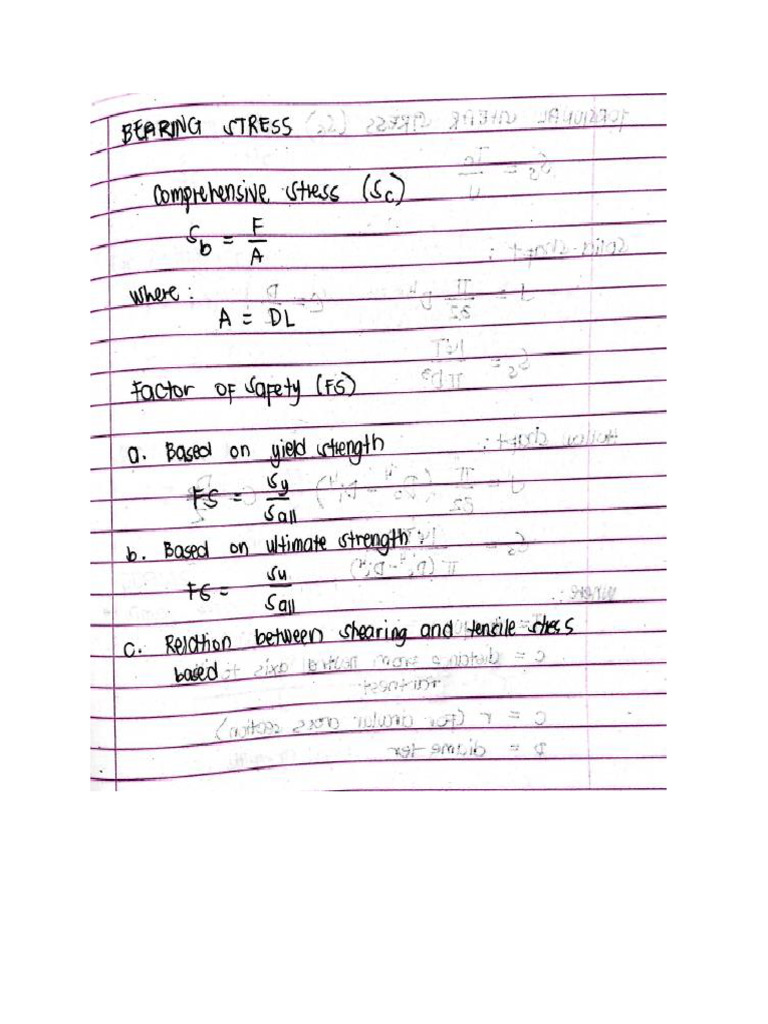 BEARING STRESS
Comprehensive stress (Sc)
Sb = F/A
where:
A = DL
Factor of Safety (FS)
a. Based on yield strength
FS = Sy/Sall
b. Based on ultimate strength:
FS = Su/Sall
c. Relation between shearing and tensile stress
based